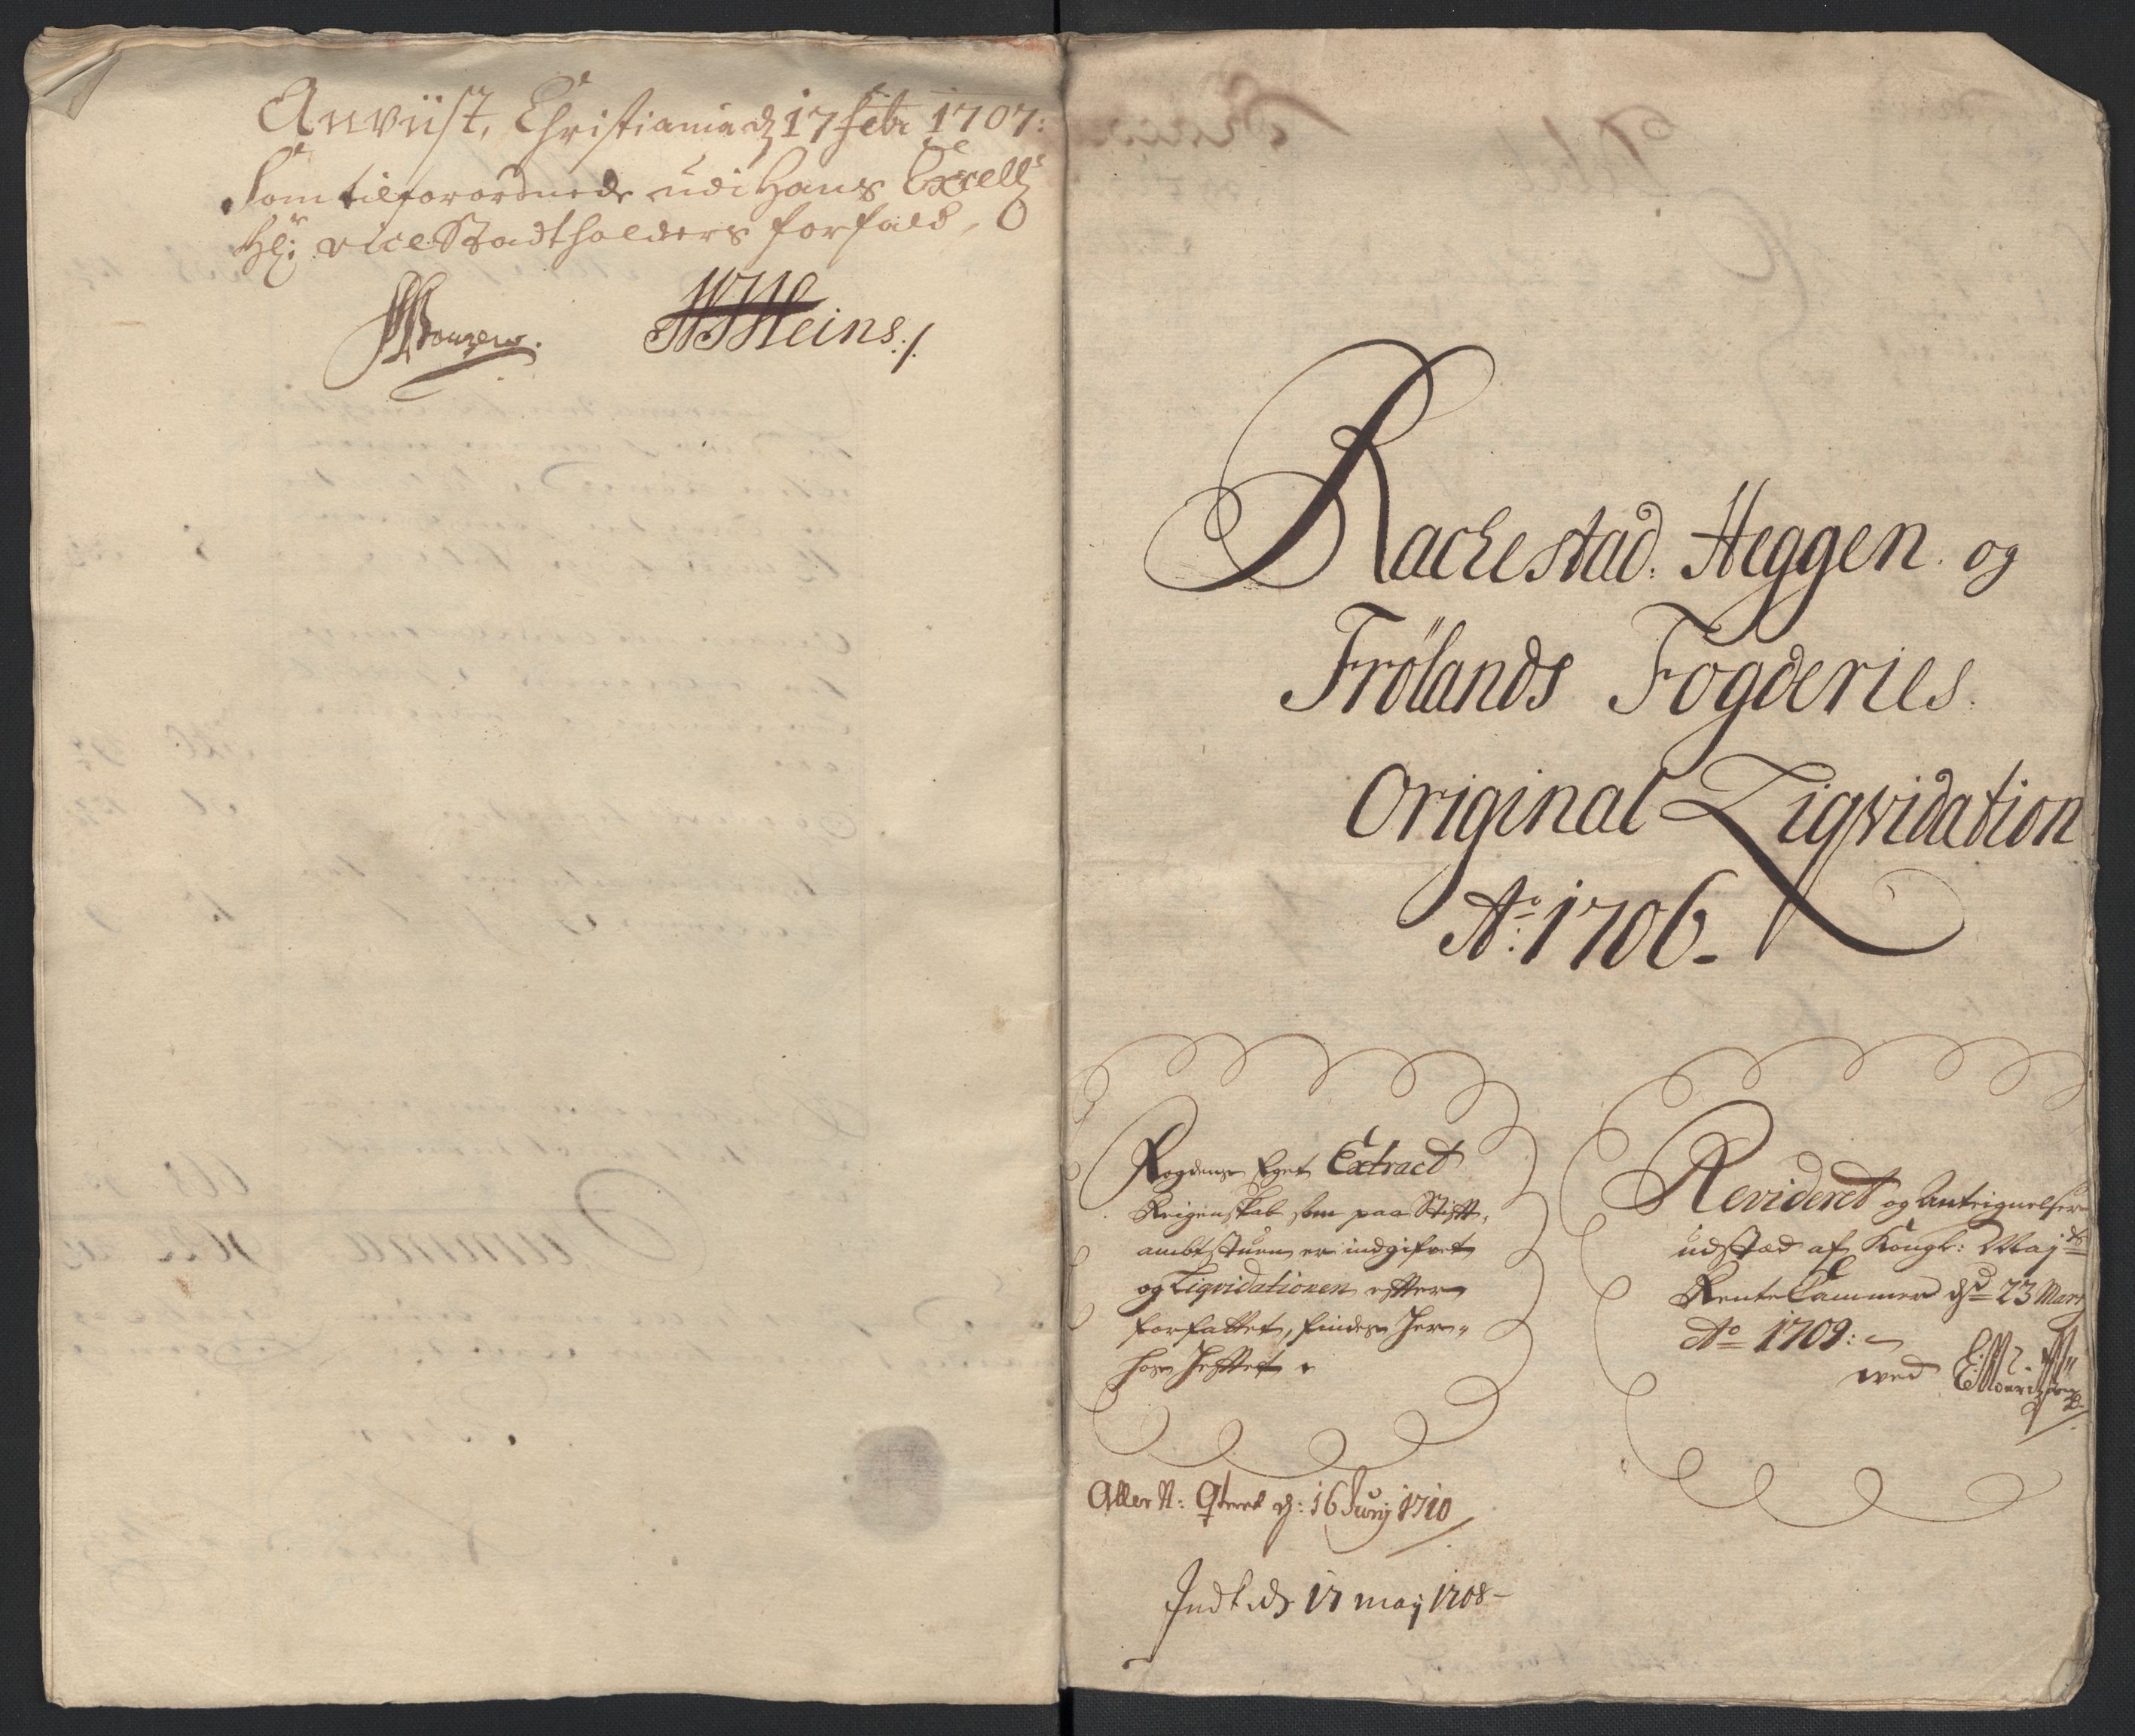 Anviist, Christiania d 17 Febr 1707:
Som tilforordnede udi Hans Excell
Hr: vice Stadtholders forfald,
Heins./.
Rachestad. Heggen. og
Frølands Fogderies.
Original Liqvidation
Ao: 1706.
Fogdens Eget Extract
Reigenskab som paa Stift,
ambtstuen er indgifvet
og Liqvidationen efter
forfattet, findes her,,
hos hefftet
Revideret og Anteignelser
udstæd af Kongl: Maj ts
Rente Cammer d 23 Marty
Ao 1709:
ved
d: 16 Junij 1710
Indk d 17 maj 1708